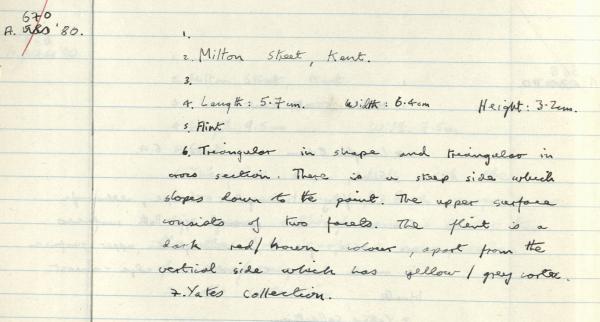 670
A. 580 '80.
1.
2. Milton Street, Kent.
3.
4. Length: 5.7cm. Width: 6.4cm Height: 3.2cm.
5. Flint
6. Triangular in shape and triangular in
cross section. There is a steep side which
slopes down to the point. The upper surface
consists of two facets. The flint is a
dark red/brown colour, apart from the
vertical side which has yellow/grey cortex.
7. Yates Collection.